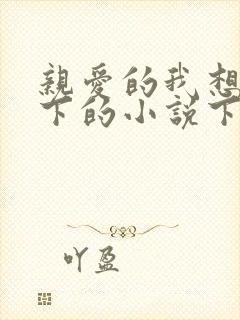 親愛的我想
下的小說下
吖盈